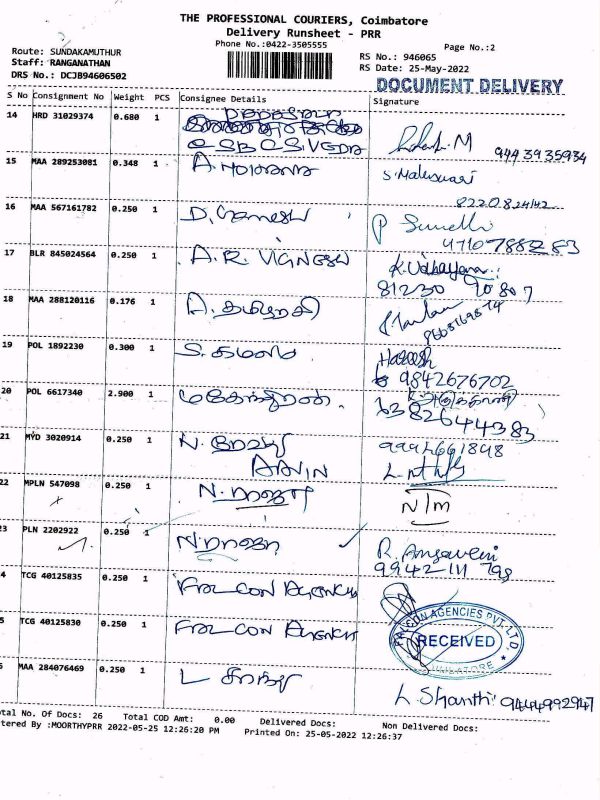 THE PROFESSIONAL COURIERS, Coimbatore
Delivery Runsheet - PRR
Phone No.:0422-3505555
Page No.:2
Route: SUNDAKAMUTHUR
Staff: RANGANATHAN
DRS No.: DCJB94606502
RS No.: 946065
RS Date: 25-May-2022
DOCUMENT DELIVERY
S No Consignment No Weight PCS Consignee Details Signature
14 HRD 31029374 0.680 1
M 9443935934
15 MAA 289253081 0.348 1 A.
S. Maheswari
8220824142
16 MAA 567161782 0.250 1 D. Ganesh
P
17 BLR 845024564 0.250 1 A.R. VIGNESH
K. Udhaya
81230 90807
18 MAA 288120116 0.176 1 A. தமிழரசி
19 POL 1892230 0.300 1 S. கமலம்
9842676702
20 POL 6617340 2.900 1 மகேந்திரன்.
6382644383
21 MYD 3020914 0.250 1 N.
9994661848
22 MPLN 547098 0.250 1 N.
N/m
23 PLN 2202922 0.250 1 N.
R. Angaveni
9942 111 798
4 TCG 40125835 0.250 1 FALCON AGENCY
5 TCG 40125830 0.250 1 FALCON AGENCY
FALCON AGENCIES PVT. LTD.
RECEIVED
COIMBATORE
6 MAA 284076469 0.250 1 L
L. Shanthi 9444992947
otal No. Of Docs: 26 Total COD Amt: 0.00 Delivered Docs: Non Delivered Docs:
tered By :MOORTHYPRR 2022-05-25 12:26:20 PM Printed On: 25-05-2022 12:26:37